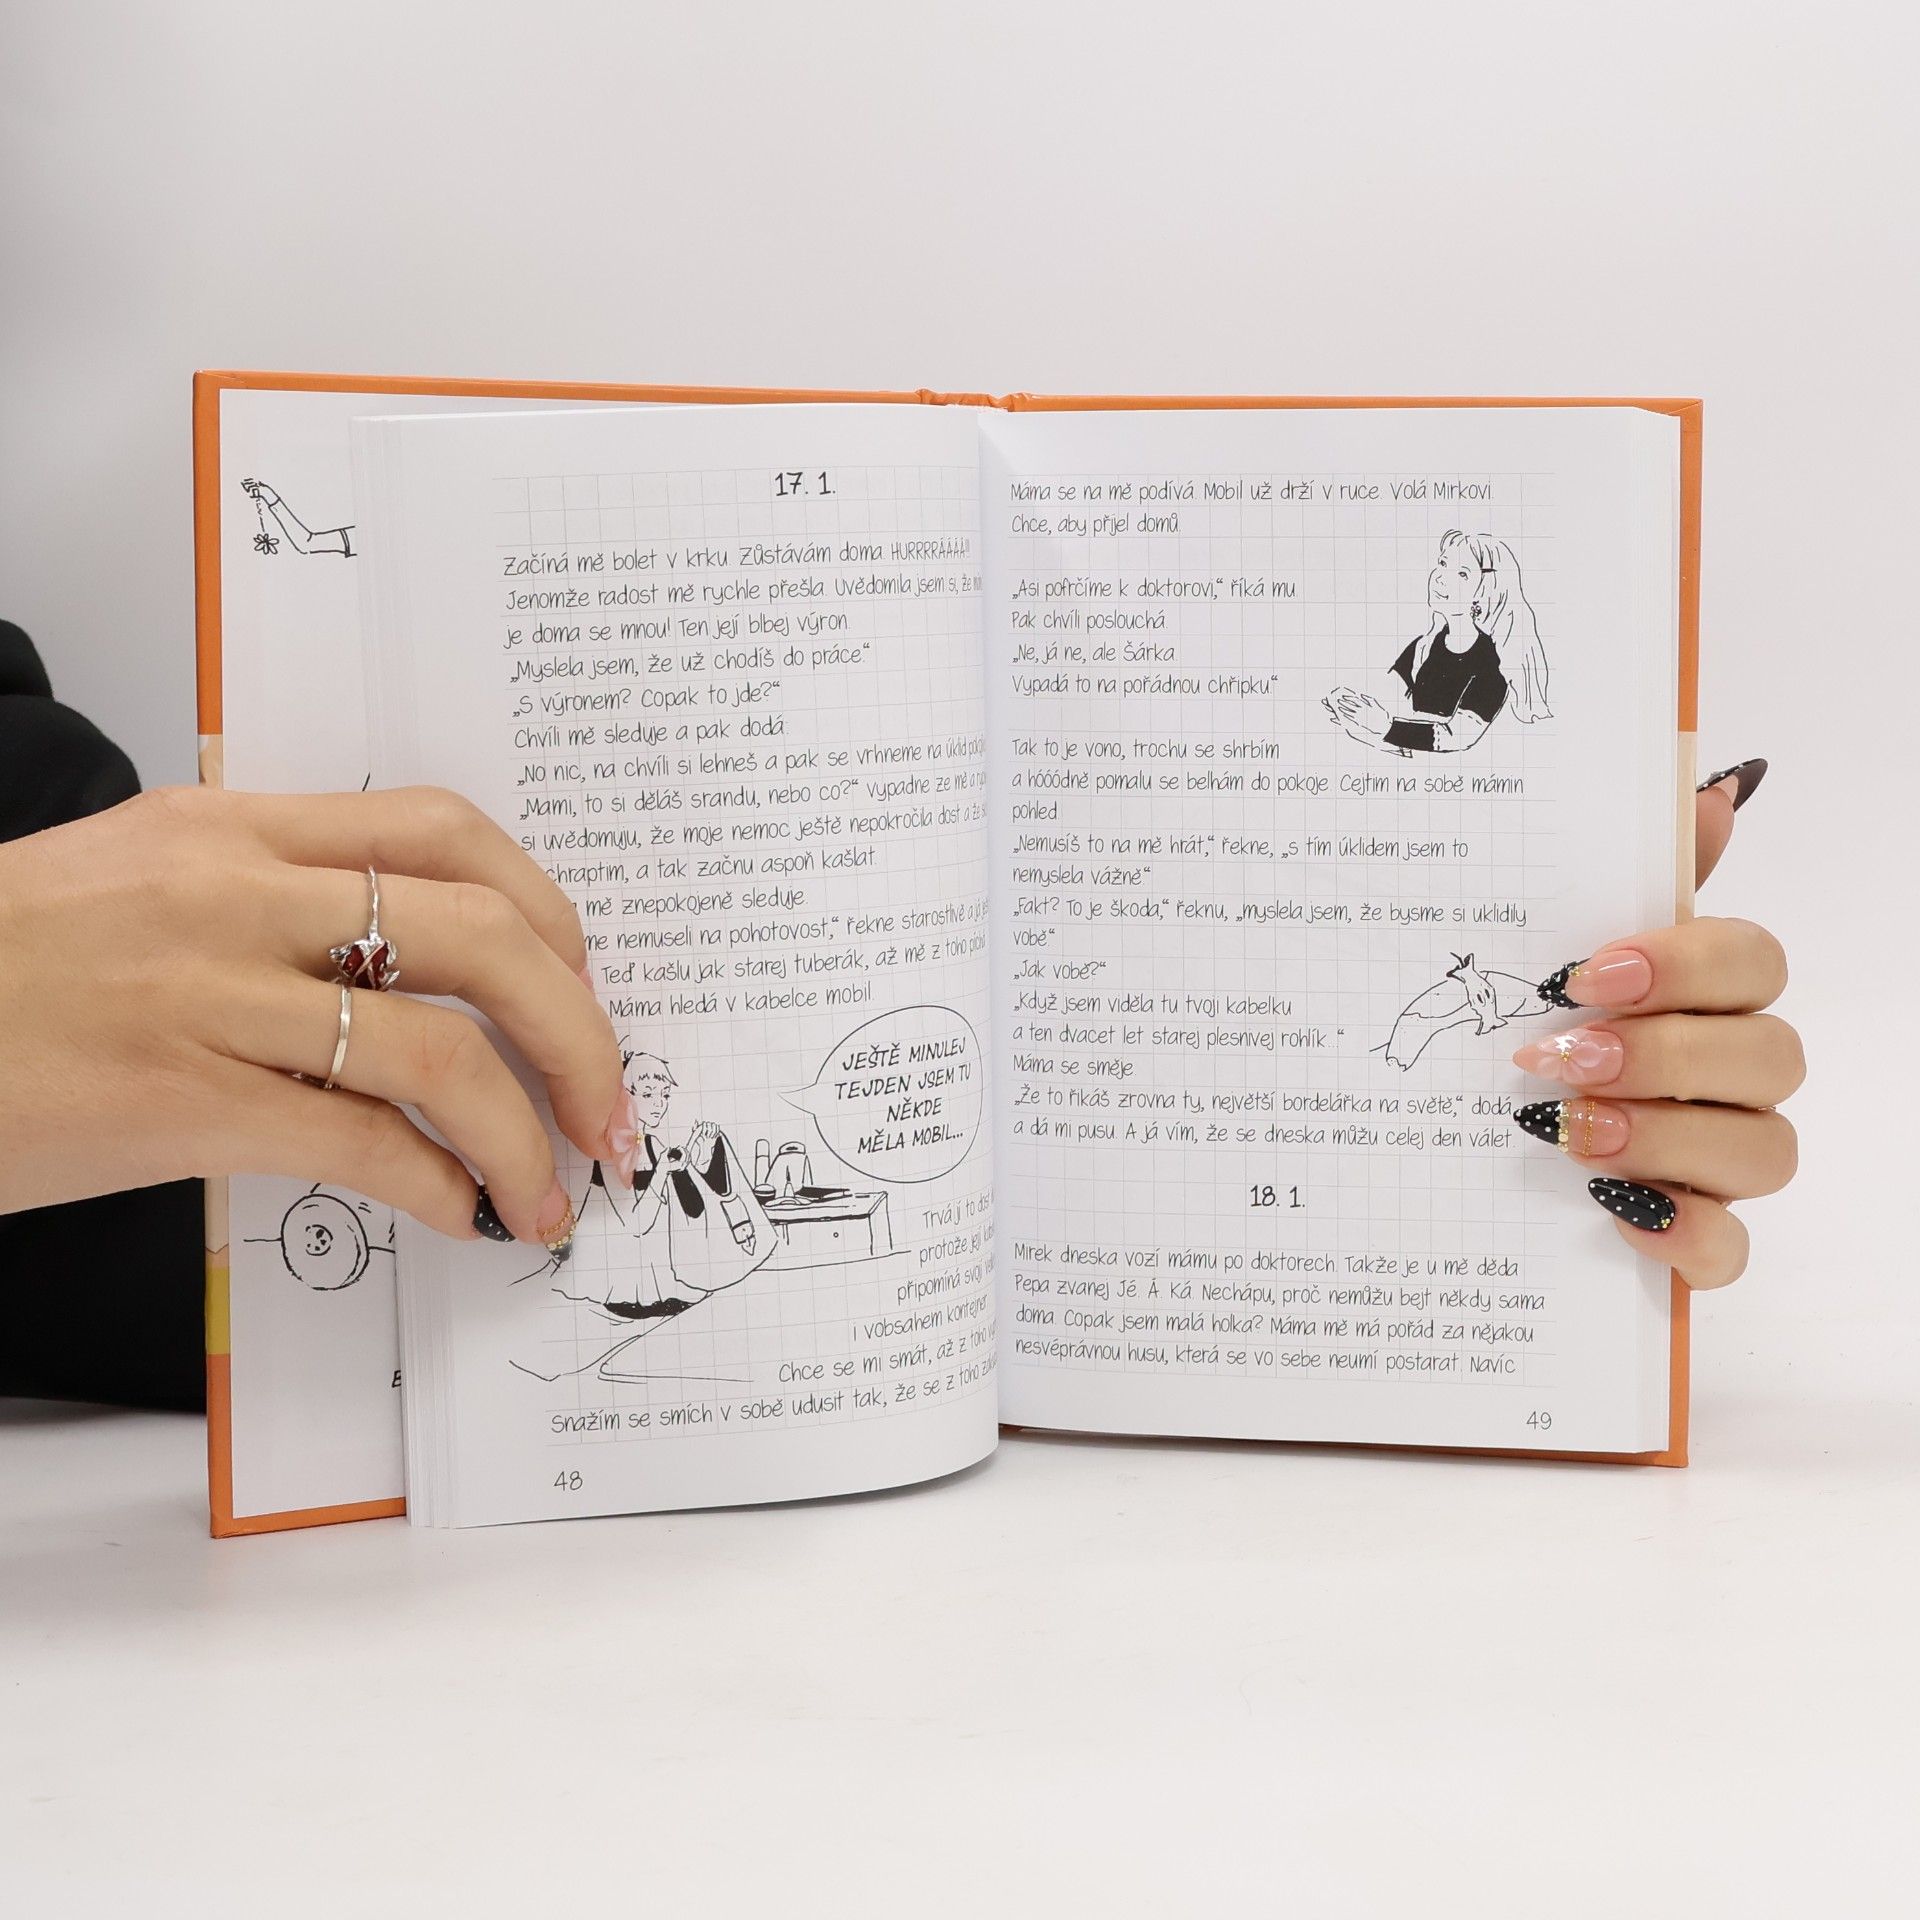 17. 1.
Začíná mě bolet v krku. Zůstávám doma. HURRRRÁÁÁÁ!!!
Jenomže radost mě rychle přešla. Uvědomila jsem si, že
je doma se mnou! Ten její blbej výron.
„Myslela jsem, že už chodíš do práce.“
„S výronem? Copak to jde?“
Chvíli mě sleduje a pak dodá:
„No nic, na chvíli si lehneš a pak se vrhneme na úklid
„Mami, to si děláš srandu, nebo co?“ vypadne ze mě a
si uvědomuju, že moje nemoc ještě nepokročila dost a že
chraptim, a tak začnu aspoň kašlat.
mě znepokojeně sleduje.
nemuseli na pohotovost,“ řekne starostlivě a já
Teď kašlu jak starej tuberák, až mě z toho píchá
Máma hledá v kabelce mobil.
JEŠTĚ MINULEJ
TEJDEN JSEM TU
NĚKDE
MĚLA MOBIL...
Trvá jí to dost
protože její
připomíná svojí
i vobsahem kontejner.
Chce se mi smát, až z toho
Snažím se smích v sobě udusit tak, že se z toho
48
Máma se na mě podívá. Mobil už drží v ruce. Volá Mirkovi.
Chce, aby přijel domů.
„Asi pofrčíme k doktorovi,“ říká mu.
Pak chvíli poslouchá.
„Ne, já ne, ale Šárka.
Vypadá to na pořádnou chřipku.“
Tak to je vono, trochu se shrbím
a hóóódně pomalu se belhám do pokoje. Cejtim na sobě mámin
pohled.
„Nemusíš to na mě hrát,“ řekne, „s tím úklidem jsem to
nemyslela vážně.“
„Fakt? To je škoda,“ řeknu, „myslela jsem, že bysme si uklidily
vobě.“
„Jak vobě?“
„Když jsem viděla tu tvoji kabelku
a ten dvacet let starej plesnivej rohlík...“
Máma se směje.
„Že to řikáš zrovna ty, největší bordelářka na světě,“ dodá
a dá mi pusu. A já vím, že se dneska můžu celej den válet.
18. 1.
Mirek dneska vozí mámu po doktorech. Takže je u mě děda
Pepa zvanej Jé. Á. Ká. Nechápu, proč nemůžu bejt někdy sama
doma. Copak jsem malá holka? Máma mě má pořád za nějakou
nesvéprávnou husu, která se vo sebe neumí postarat. Navíc
49